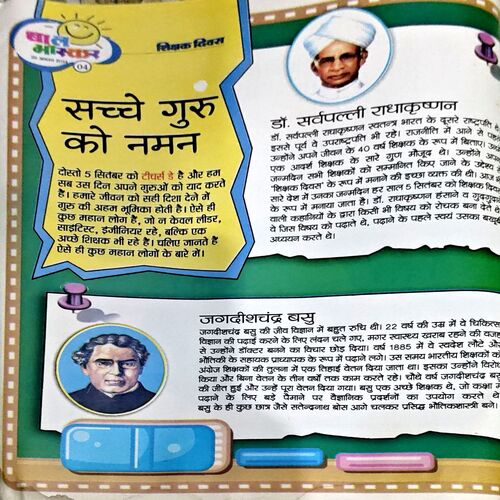 बाल
भास्कर
04
शिक्षक दिवस
सच्चे गुरु
को नमन
दोस्तो 5 सितंबर को टीचर्स डे है और हम
सब उस दिन अपने गुरुओं को याद करते
हैं। हमारे जीवन को सही दिशा देने में
गुरु की अहम भूमिका होती है। ऐसे ही
कुछ महान लोग हैं, जो न केवल लीडर,
साइंटिस्ट, इंजीनियर रहे, बल्कि एक
अच्छे शिक्षक भी रहे हैं। चलिए जानते हैं
ऐसे ही कुछ महान लोगों के बारे में।
डॉ. सर्वपल्ली राधाकृष्णन
डॉ. सर्वपल्ली राधाकृष्णन स्वतन्त्र भारत के दूसरे राष्ट्रपति
इससे पूर्व वे उपराष्ट्रपति भी रहे। राजनीति में आने से
उन्होंने अपने जीवन के 40 वर्ष शिक्षक के रूप में बिताए।
एक आदर्श शिक्षक के सारे गुण मौजूद थे। उन्होंने
जन्मदिन सभी शिक्षकों को सम्मानित किए जाने के उद्देश्य
'शिक्षक दिवस' के रूप में मनाने की इच्छा व्यक्त की थी। आज
सारे देश में उनका जन्मदिन हर साल 5 सितंबर को शिक्षक
के रूप में मनाया जाता है। डॉ. राधाकृष्णन हंसाने व
वाली कहानियों के द्वारा किसी भी विषय को रोचक बना देते
वे जिस विषय को पढ़ाते थे, पढ़ाने के पहले स्वयं उसका
अध्ययन करते थे।
जगदीशचंद्र बसु
जगदीशचंद्र बसु की जीव विज्ञान में बहुत रुचि थी। 22 वर्ष की उम्र में वे
विज्ञान की पढ़ाई करने के लिए लंदन चले गए, मगर स्वास्थ्य खराब रहने की वजह
से उन्होंने डॉक्टर बनने का विचार छोड़ दिया। वर्ष 1885 में वे स्वदेश लौटे और
भौतिकी के सहायक प्राध्यापक के रूप में पढ़ाने लगे। उस समय भारतीय शिक्षकों को
अंग्रेज शिक्षकों की तुलना में एक तिहाई वेतन दिया जाता था। इसका उन्होंने विरोध
किया और बिना वेतन के तीन वर्षों तक काम करते रहे। चौथे वर्ष जगदीशचंद्र बसु
की जीत हुई और उन्हें पूरा वेतन दिया गया। बसु एक अच्छे शिक्षक थे, जो कक्षा में
पढ़ाने के लिए बड़े पैमाने पर वैज्ञानिक प्रदर्शनों का उपयोग करते थे।
बसु के ही कुछ छात्र जैसे सतेन्द्रनाथ बोस आगे चलकर प्रसिद्ध भौतिकशास्त्री बने।